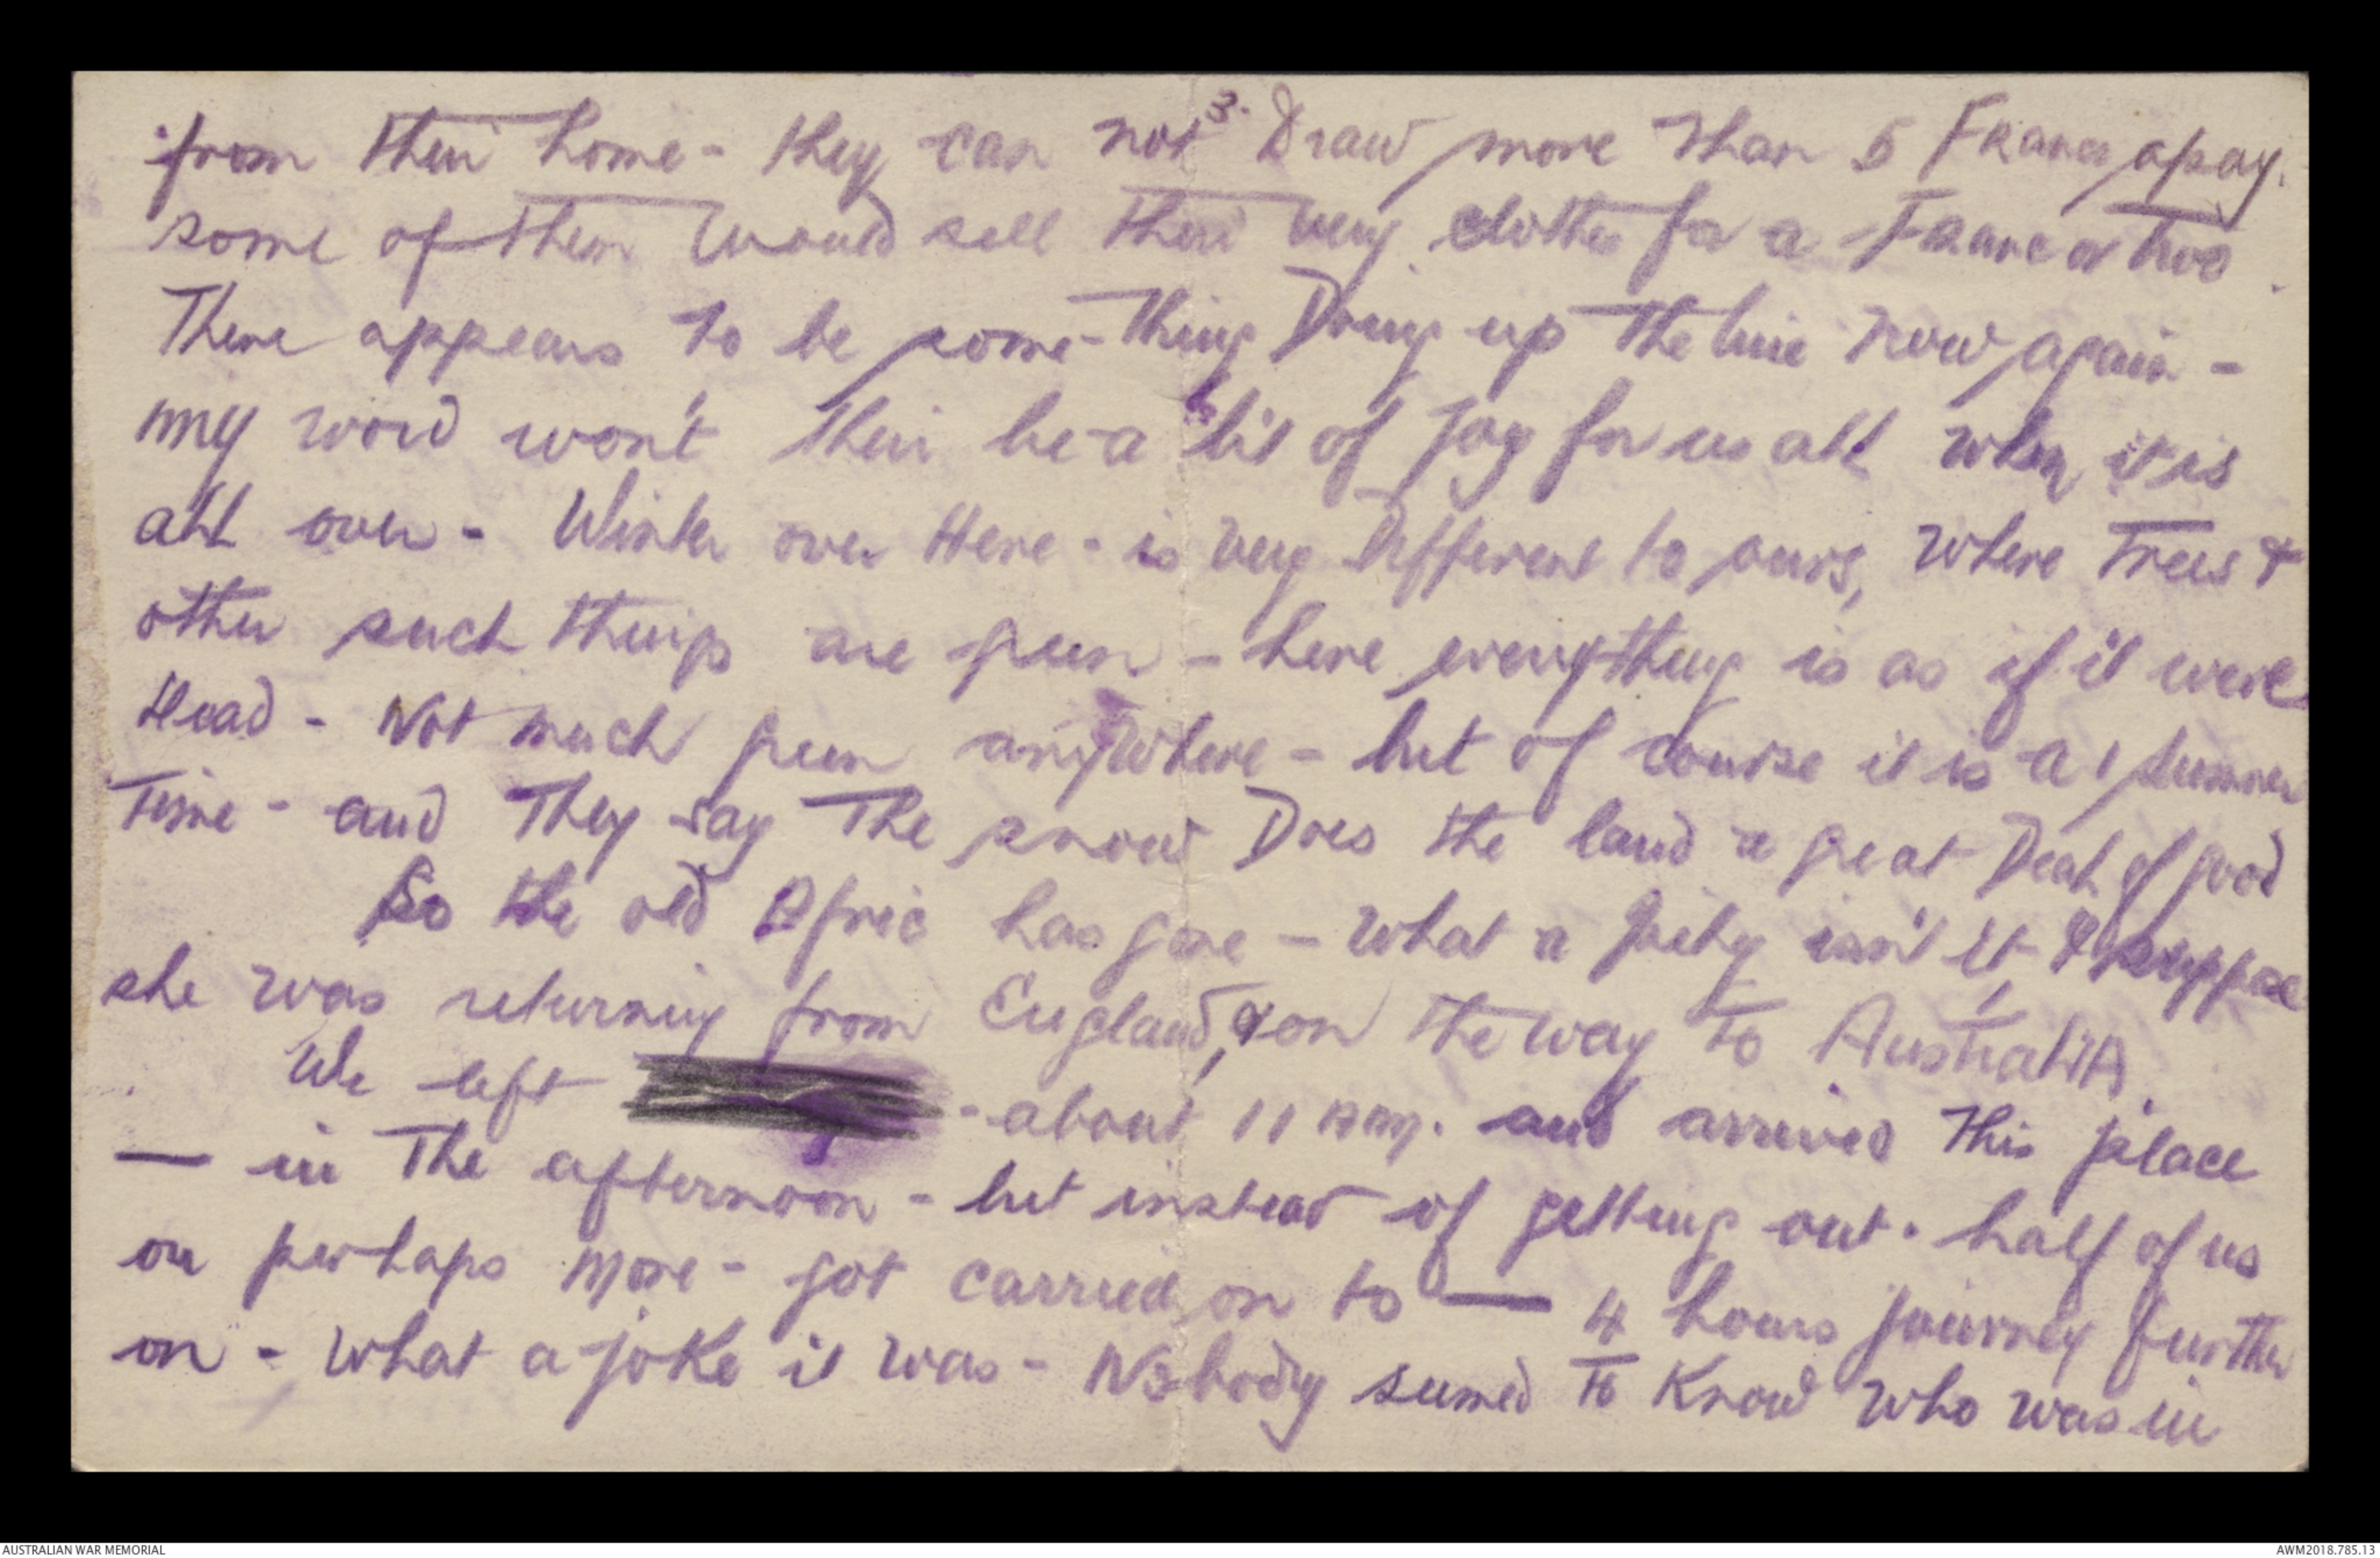 3.
from their home - they can not Draw more than 5 Francs apay.
some of them would sell their very clothes for a Franc or two.
There appears to be some-thing Doing up the line now again -
my word won't their be a bit of joy for us all when it is
all over - Winter over Here - is very Different to ours, where trees &
other such things are green - here everything is as if it were
Dead - Not much green anywhere - but of course it is a 1 Summer
Time - and They say The snow Does the land a great Deal of good
So the old Afric has gone - what a pity isn't it, I suppose
she was returning from England, & on the way to Australia.
We left - about 11 am. and arrived this place
— in The afternoon - but instead of getting out. half of us
or perhaps more - got carried on to — 4 hours journey further
on - what a joke it was - Nobody seemed to Know who was in
AUSTRALIAN WAR MEMORIAL
AWM2018.785.13